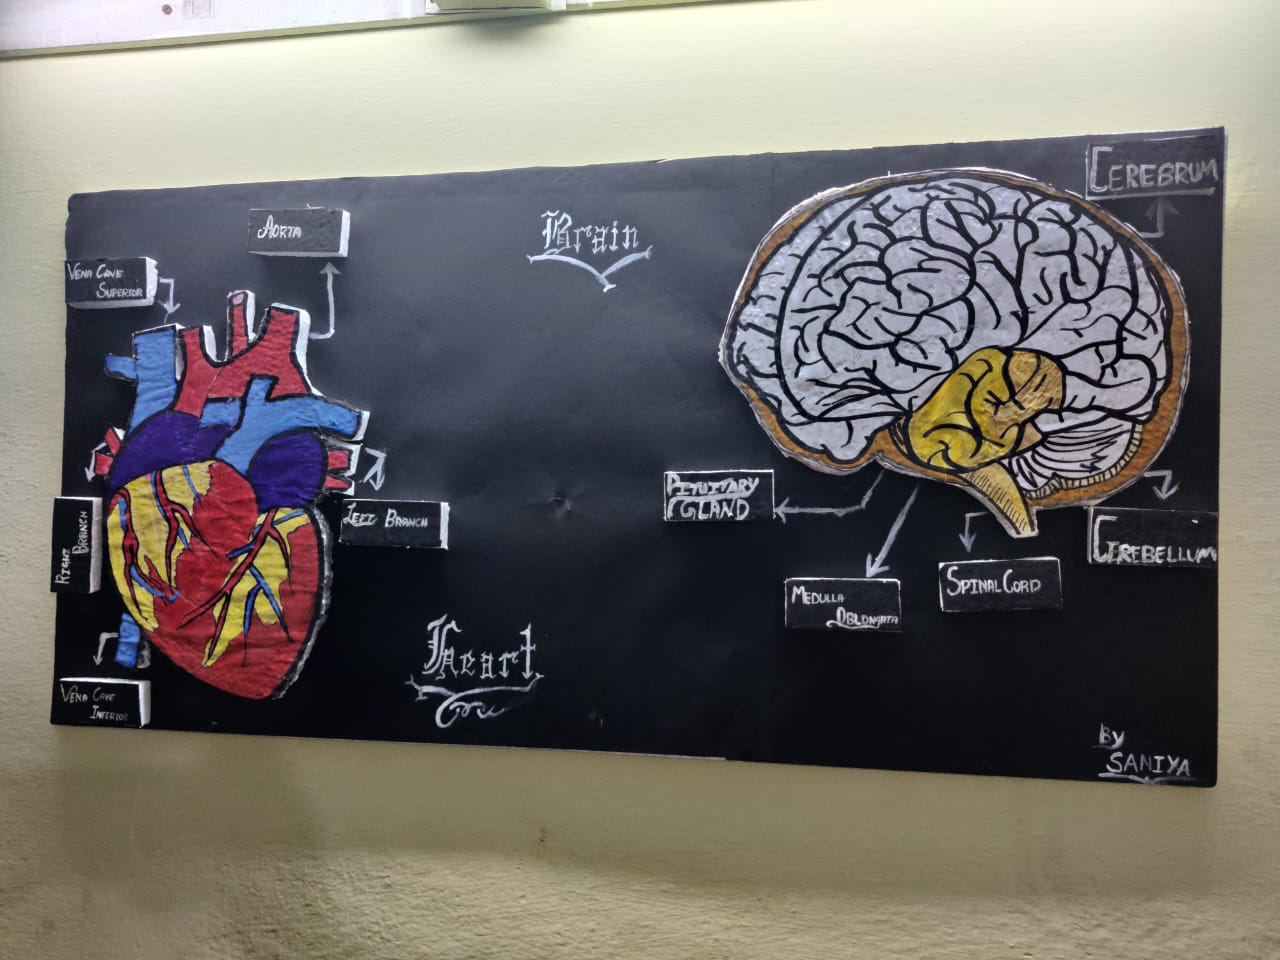 Cerebrum
Aorta
Brain
Vena Cave
Superior
Pituitary
Gland
Left Branch
Right
Branch
Cirebellum
Spinal Cord
Medulla
Oblongata
Heart
Vena Cave
Inferior
By
Saniya